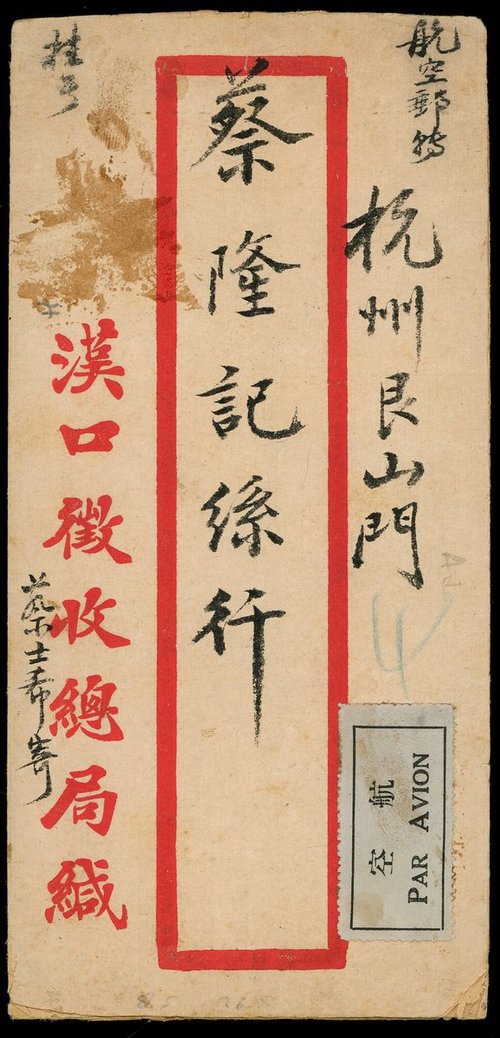 航空郵
杭州艮山門
4
航空
PAR AVION
蔡隆記絲行
挂号
漢口徵收總局緘
蔡士寄